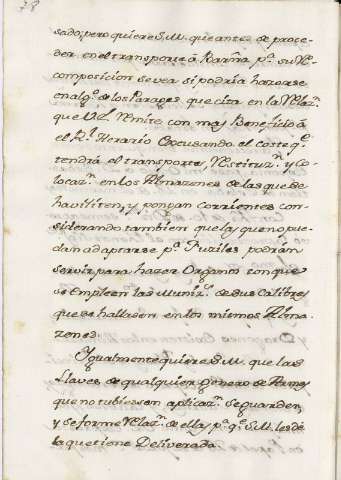 28
sado; pero quiere S.M. que antes de proce-
der en el transporte à Barna. pa. su Re-
composicion se vea si podria hazerse
en algo. de los Parages que cita en la Relazn.
que V.E. remite con mas Beneficio à
el Rl. Herario Excusando el coste qe.
tendrá el transporte, Restituzn. y Co-
locazn. en los Almazenes de las que se
haviliten, y pongan corrientes con-
siderando tambien que las que no pue-
dan adaptarse pa. Fusiles podran
servir para hazer Organos con que
se Empleen las Munizs. de sus Calibres
que se hallaren en los mismos Alma-
zenes.
Igualmente quiere S.M. que las
Llaves de qualquier Genero de Armas
que no tubiesen aplicazn. se guarden,
y se forme Relazn. de ellas pa. qe. S.M. les dè
la que tiene Deliverada.